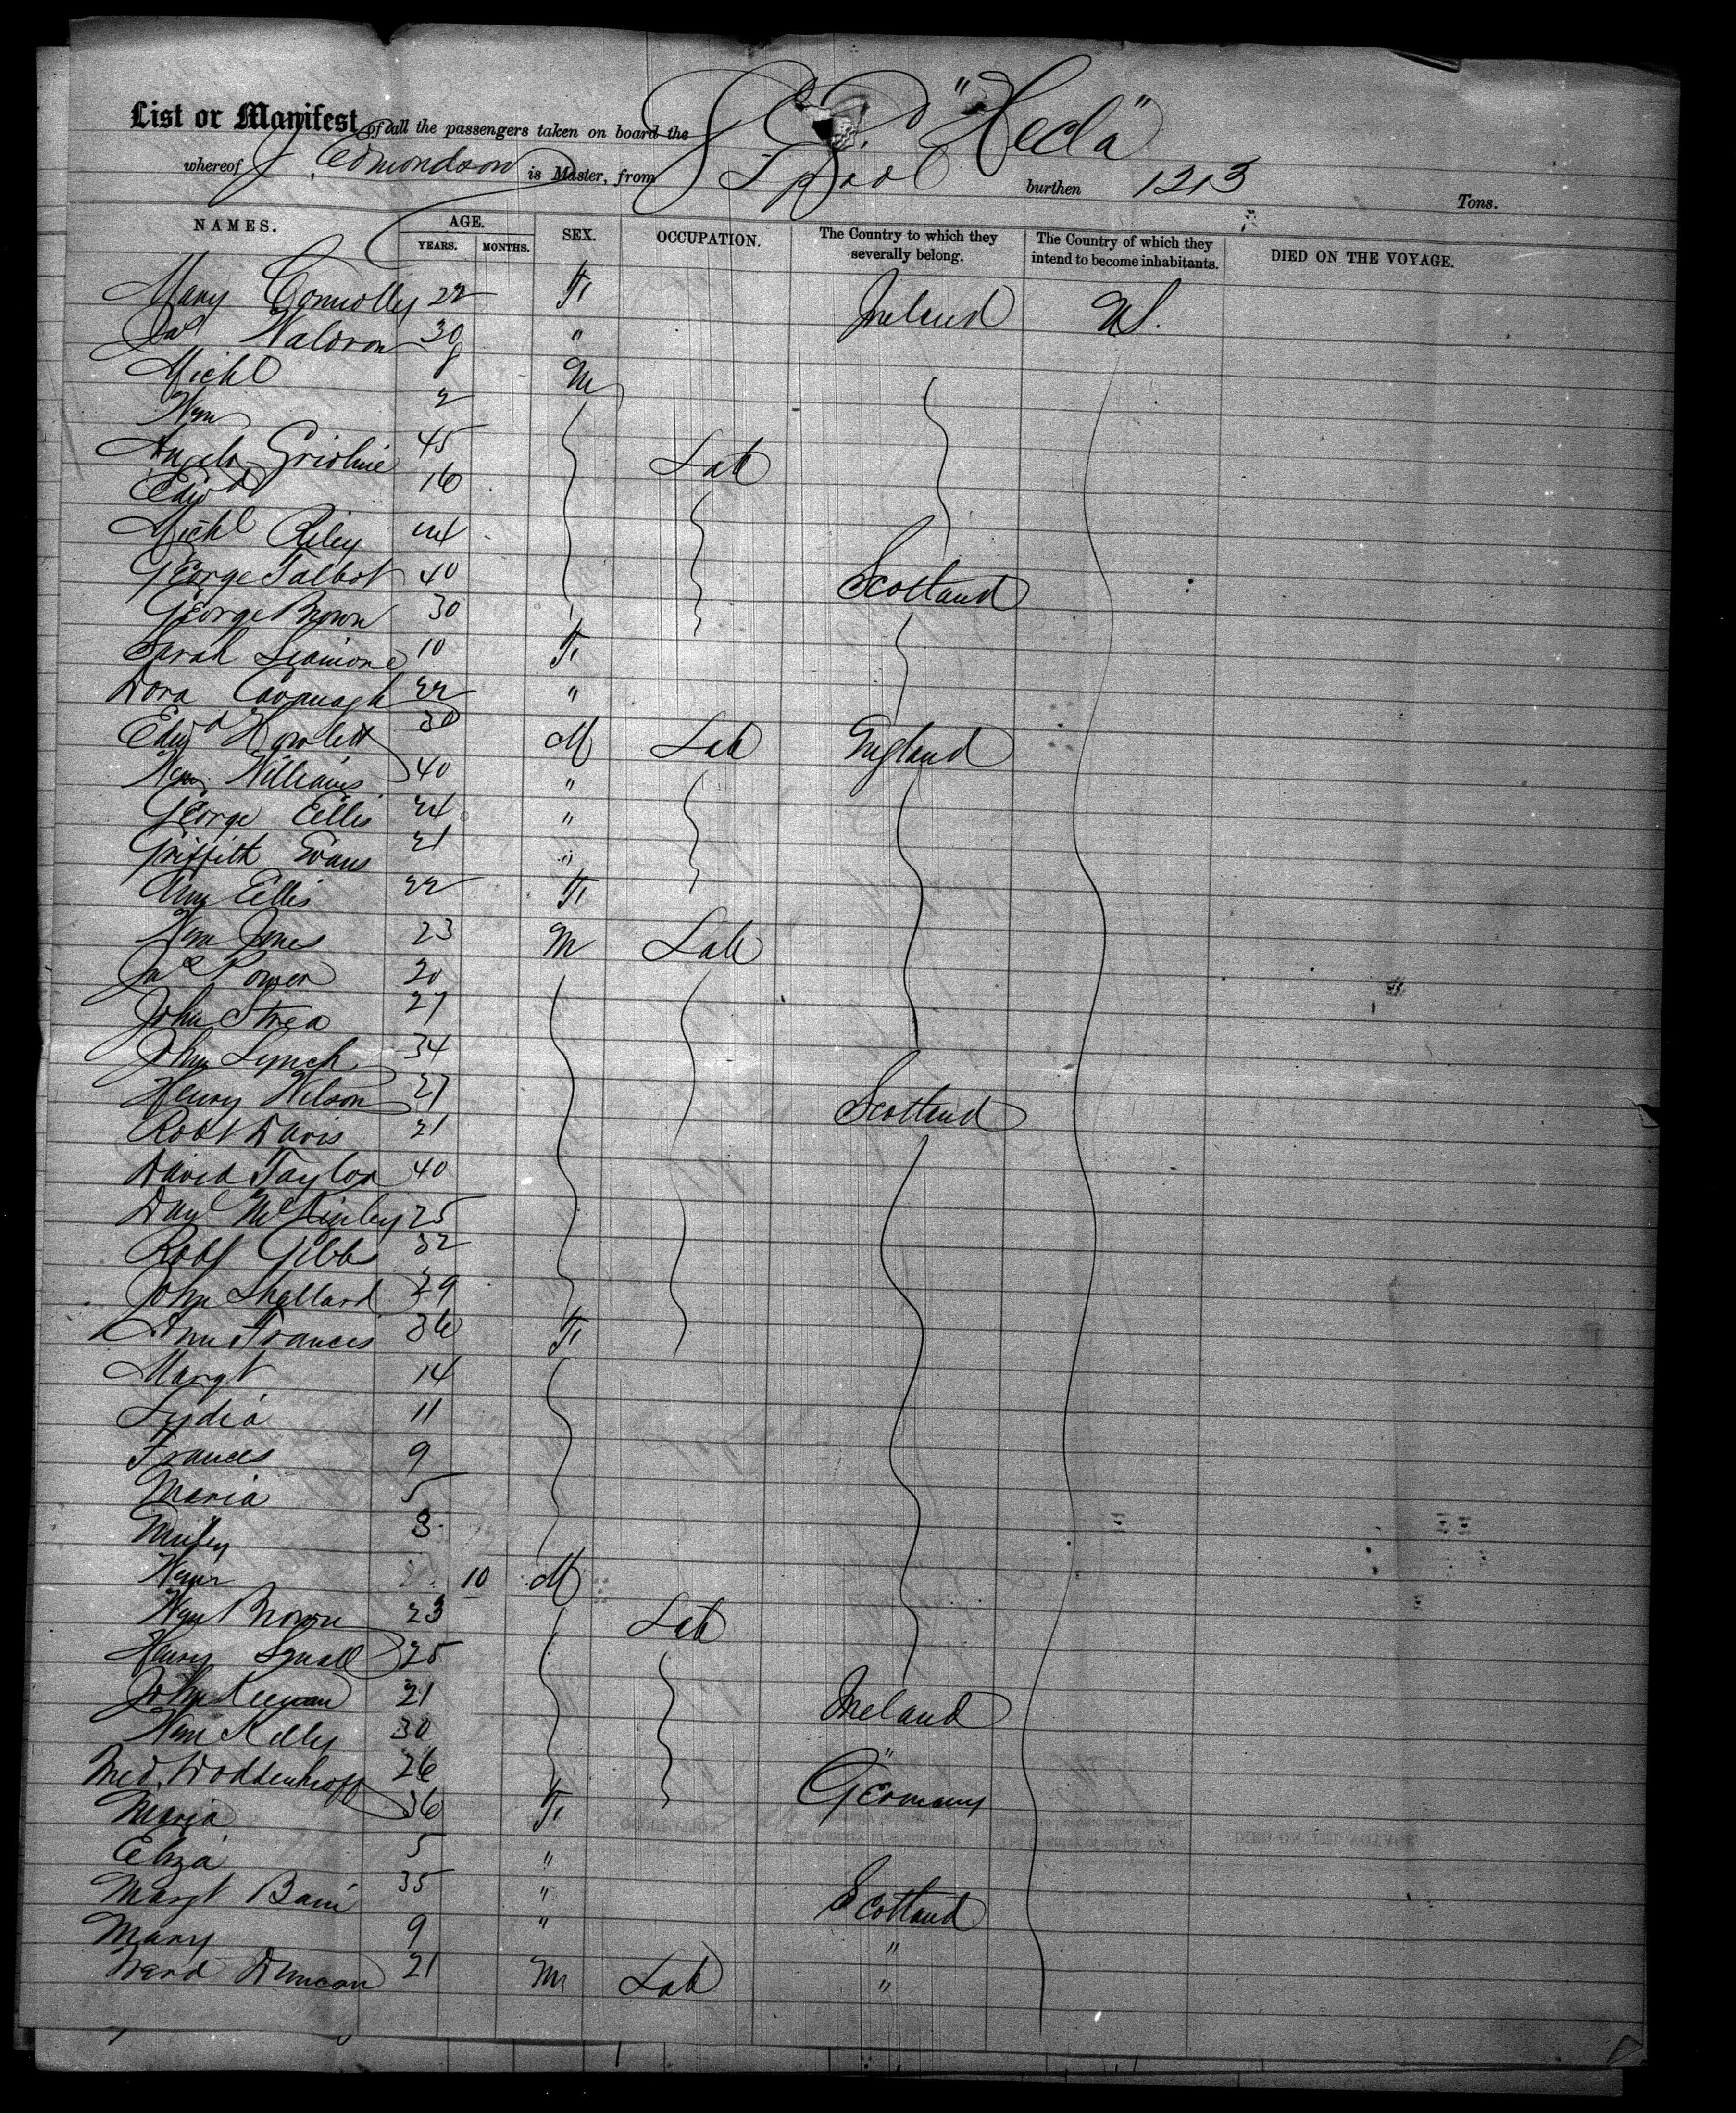 List or Manifest of all the passengers taken on board the S.S. "Hecla"
whereof J. Edmondson is Master, from L'pool burthen 1213 Tons.
NAMES. AGE. SEX. OCCUPATION. The Country to which they severally belong. The Country of which they intend to become inhabitants. DIED ON THE VOYAGE.
YEARS. MONTHS.
Mary Connolly 22 F Ireland U.S.
Waldron 30 "
Michl 8 M
Wm 2
Angelo 45 Lab
Edwd 16
Michl Riley 24
George Talbot 40 Scotland
George Brown 30
Sarah 10 F
Dora Cavanagh 22 "
Edwd Howlett 30 M Lab England
Wm Williams 40 "
George Ellis 24 "
Griffith Evans 21 "
Amy Ellis 22 F
Wm Jones 23 M Lab
Jas Power 20
John 27
John Lynch 34
Henry Wilson 27 Scotland
Robt Davis 21
David Taylor 40
Danl McKinley 25
Robt Gibbs 32
John Shellard 29
Ann Frances 36 F
Margt 14
Lydia 11
Frances 9
Maria 5
3
10 M
Wm Brown 23 Lab
Henry Small 25
John Keewan 21 Ireland
Wm Kelly 30 "
Fred. Doddenhoff 26 Germany
Maria 36 F
Eliza 5 "
Margt Bain 35 " Scotland
Mary 9 " "
Duncan 21 M Lab "